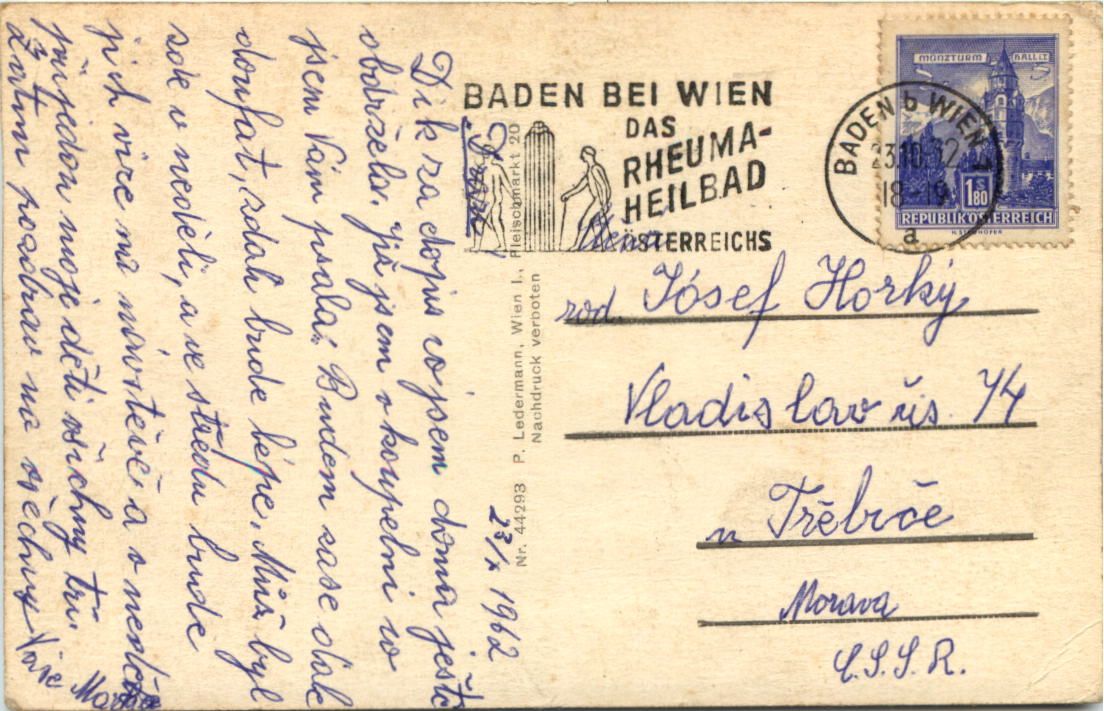 BADEN BEI WIEN
DAS
RHEUMA-
HEILBAD
ÖSTERREICHS
BADEN b WIEN 1
23.10.62
18-19
a
MÜNZTURM HALL I.T.
1.80 S
REPUBLIK ÖSTERREICH
Nr. 44293 P. Ledermann, Wien I., Fleischmarkt 20
Nachdruck verboten
23/X 1962
Dík za dopis co jsem doma ještě
obdržela, já jsem v koupelni co
jsem Vám psala. Budem zase dále
doufat, že dál bude lépe. Můž byl
zde v neděli, a ve středu bude
jich více na návštěvě a v neděli
přijedou moje děti všichny tři.
Zatím pozdrav na všechny Vaše
rod. Jósef Horký
Vladislav čís. 74
u Třebíče
Morava
Č.S.S.R.